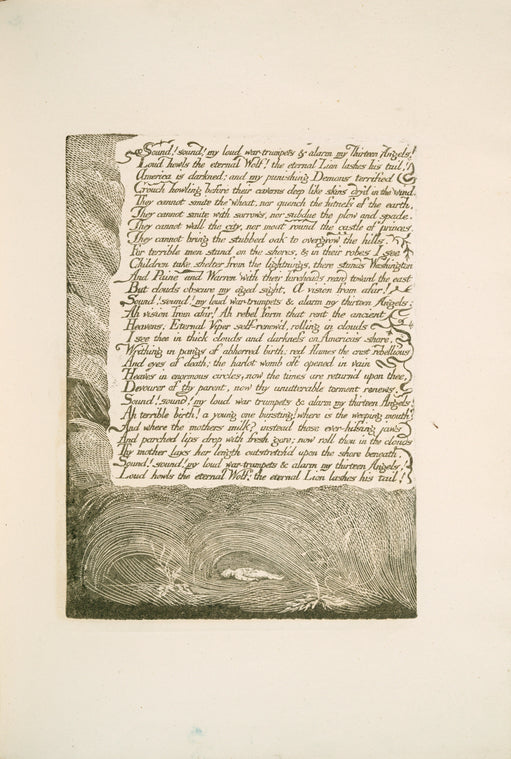 Sound! sound! my loud war-trumpets & alarm my Thirteen Angels!
Loud howls the eternal Wolf! the eternal Lion lashes his tail!
America is darkned; and my punishing Demons terrified
Crouch howling before their caverns deep like skins dry'd in the wind.
They cannot smite the wheat, nor quench the fatness of the earth.
They cannot smite with sorrows, nor subdue the plow and spade.
They cannot wall the city, nor moat round the castle of princes.
They cannot bring the stubbed oak to overgrow the hills.
For terrible men stand on the shores, & in their robes I see
Children take shelter from the lightnings, there stands Washington
And Paine and Warren with their foreheads reard toward the east
But clouds obscure my aged sight. A vision from afar!
Sound! sound! my loud war-trumpets & alarm my thirteen Angels:
Ah vision from afar! Ah rebel form that rent the ancient
Heavens, Eternal Viper self-renew'd, rolling in clouds
I see thee in thick clouds and darkness on America's shore.
Writhing in pangs of abhorred birth; red flames the crest rebellious
And eyes of death; the harlot womb oft opened in vain
Heaves in enormous circles, now the times are return'd upon thee,
Devourer of thy parent, now thy unutterable torment renews.
Sound! sound! my loud war trumpets & alarm my thirteen Angels!
Ah terrible birth! a young one bursting! where is the weeping mouth?
And where the mothers milk? instead those ever-hissing jaws
And parched lips drop with fresh gore; now roll thou in the clouds
Thy mother lays her length outstretch'd upon the shore beneath.
Sound! sound! my loud war-trumpets & alarm my thirteen Angels!
Loud howls the eternal Wolf: the eternal Lion lashes his tail!